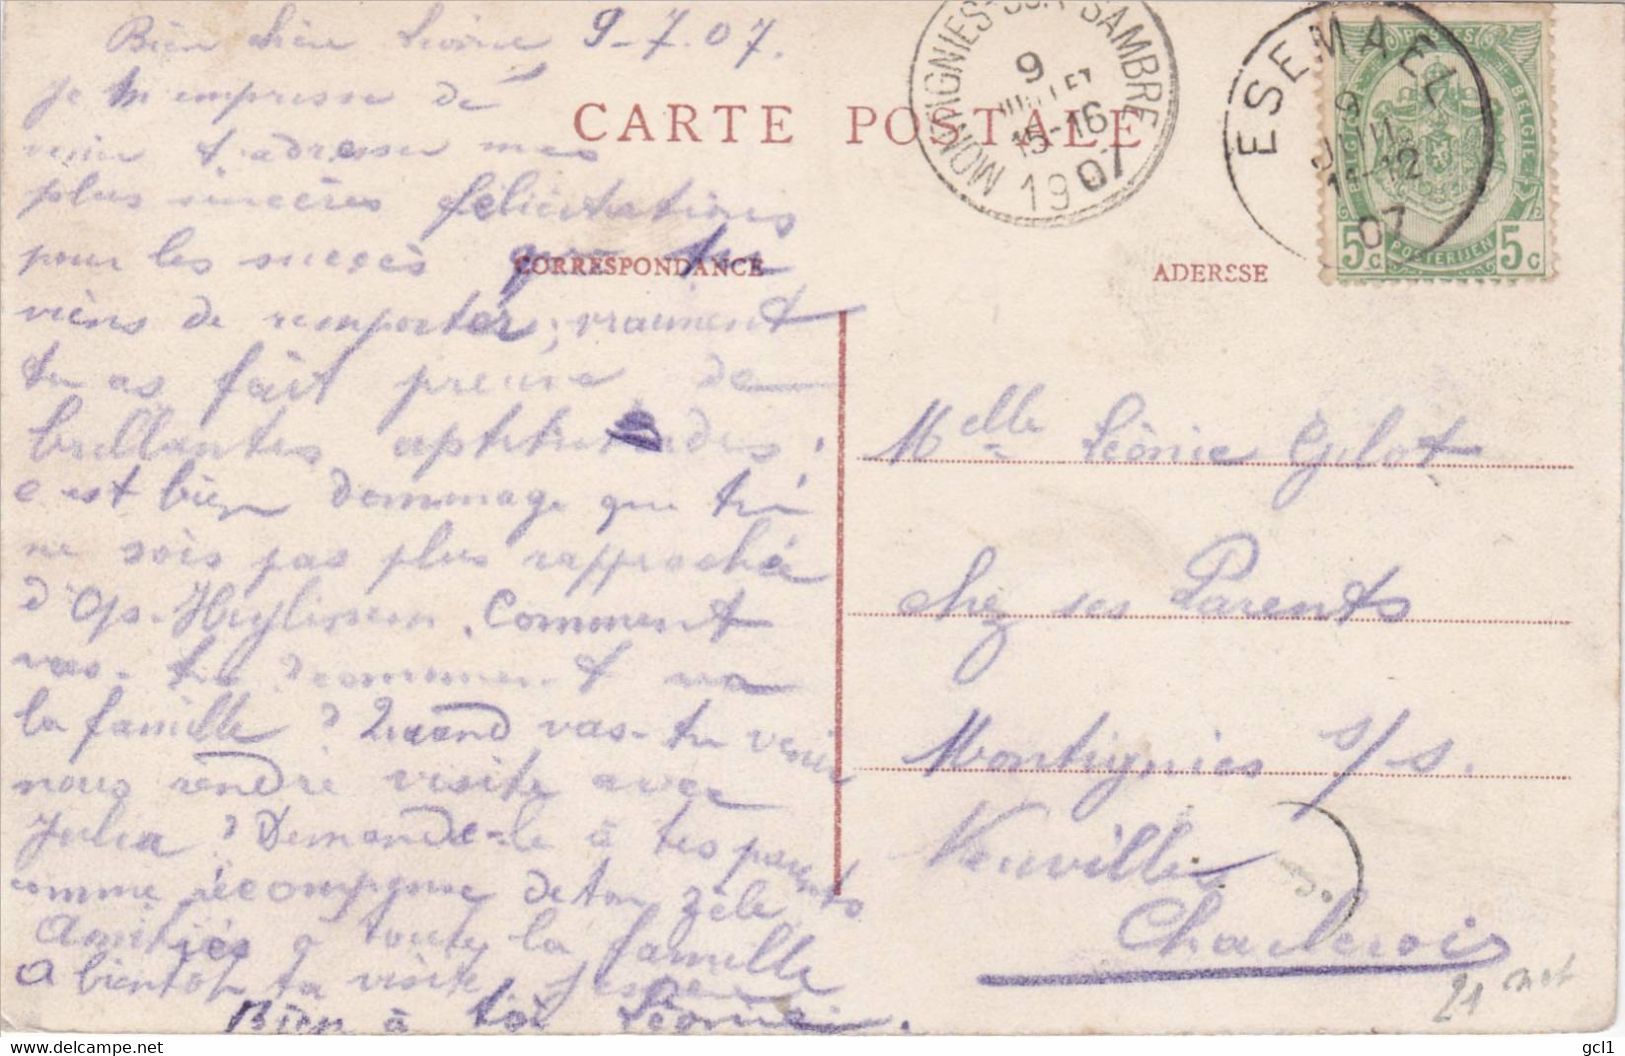 Bien chère Léonie 9-7-07.
Je m'empresse de
venir t'adresser mes
plus sincères félicitations
pour les succès que tu
viens de remporter, vraiment
tu as fait preuve de
brillantes aptitudes.
c'est bien dommage que tu
ne sois pas plus rapproché
d'Op-Heylissem. Comment
vas-tu ? comment va
la famille ? Quand vas-tu venir
nous rendre visite avec
Julia ? Demande-le à tes parents
comme récompense de ton zèle
Amitiés à toute la famille
A bientôt ta visite
Bien à toi Léonie.
CARTE POSTALE
CORRESPONDANCE
ADERSSE
MONTIGNIES-SUR-SAMBRE
9
JUILLET
15-16
1907
ESEMAEL
9
JUIL
11-12
07
BELGIQUE
BELGIE
POSTERIJEN
5c 5c
Melle Léonie Gilot
chez ses Parents
Montignies s/s.
Neuville
Charleroi
21 net
gcl1